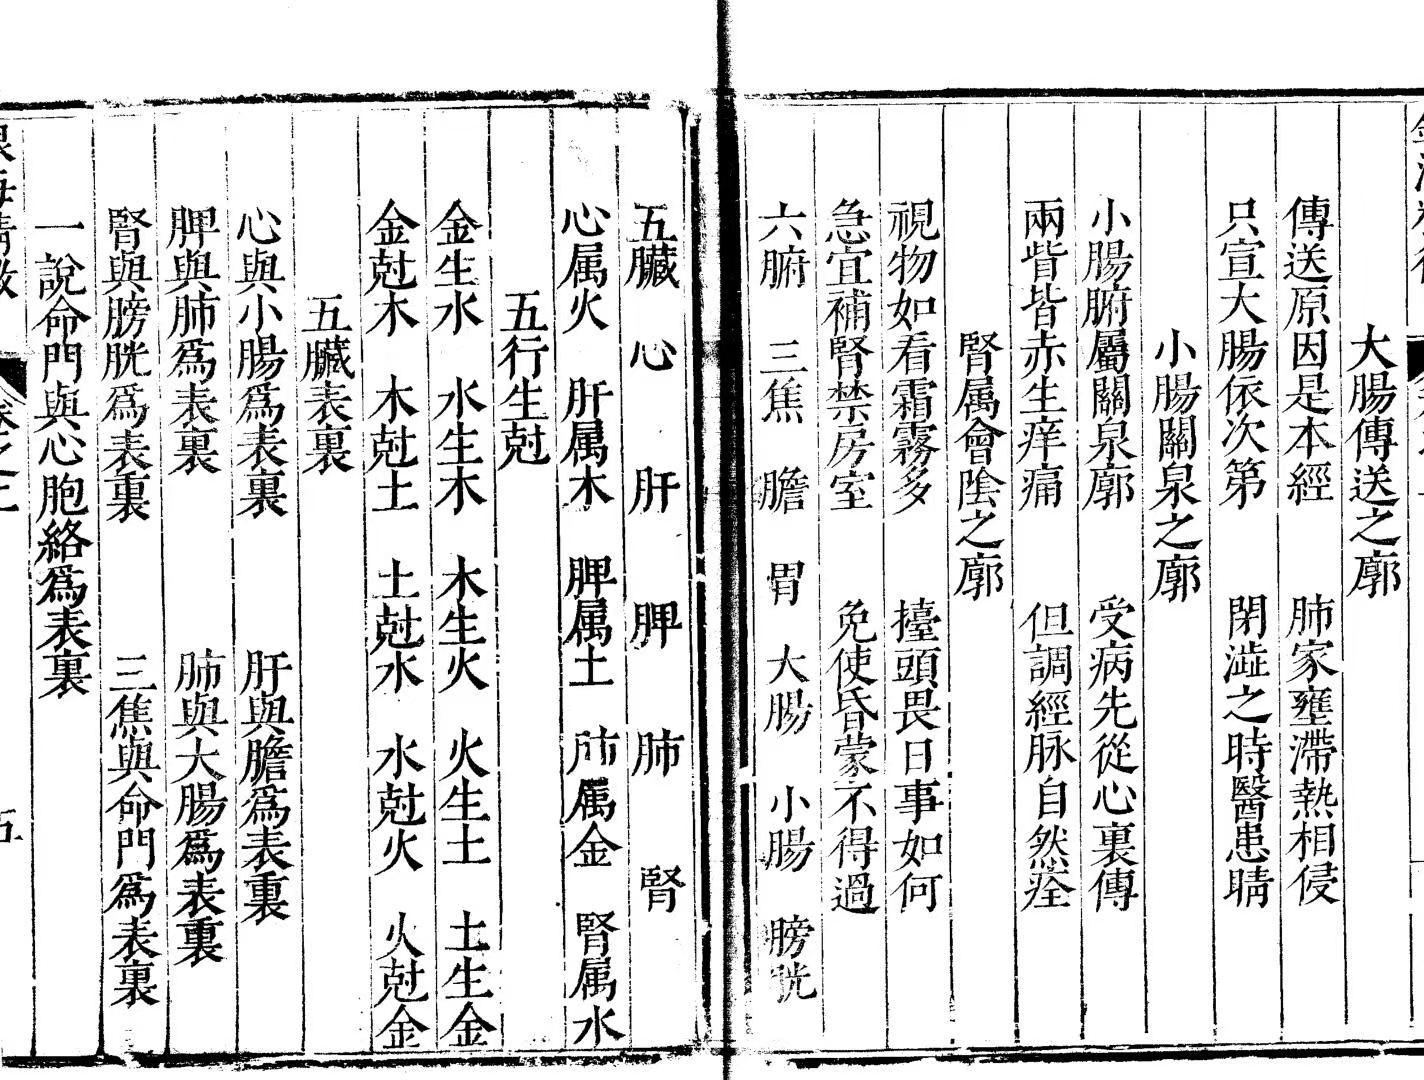 大腸傳送之廓
傳送原因是本經　肺家壅滯熱相侵
只宣大腸依次第　閉澁之時醫患睛
小腸關泉之廓
小腸腑屬關泉廓　受病先從心裏傳
兩眥皆赤生痒痛　但調經脉自然痊
腎属會陰之廓
視物如看霜霧多　擡頭畏日事如何
急宜補腎禁房室　免使昏蒙不得過
六腑　三焦　膽　胃　大腸　小腸　膀胱
五臟　心　肝　脾　肺　腎
心属火　肝属木　脾属土　肺属金　腎属水
五行生尅
金生水　水生木　木生火　火生土　土生金
金尅木　木尅土　土尅水　水尅火　火尅金
五臟表裏
心與小腸爲表裏　肝與膽爲表裏
脾與肺爲表裏　肺與大腸爲表裏
腎與膀胱爲表裏　三焦與命門爲表裏
一說命門與心胞絡爲表裏